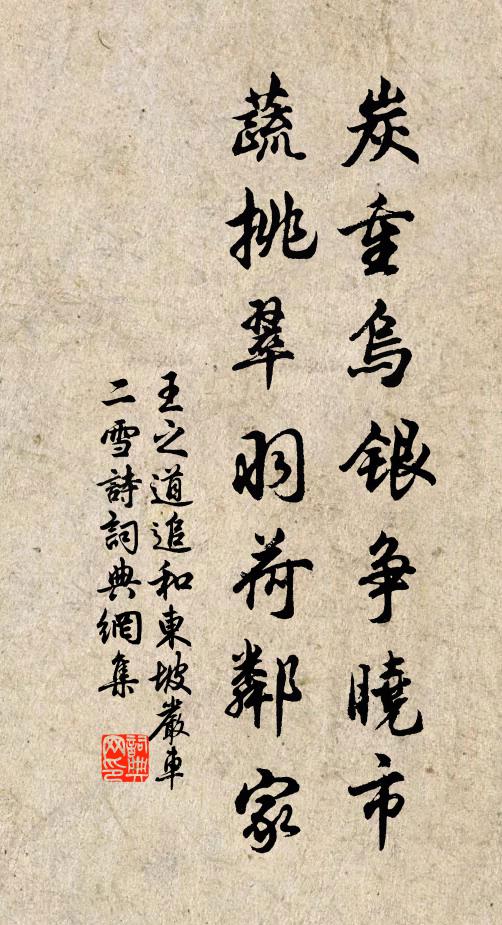 炭重烏銀争曉市
蔬挑翠羽荷鄰家
王之道追和東坡嚴車
二雪詩詞典網集
詞典
网印